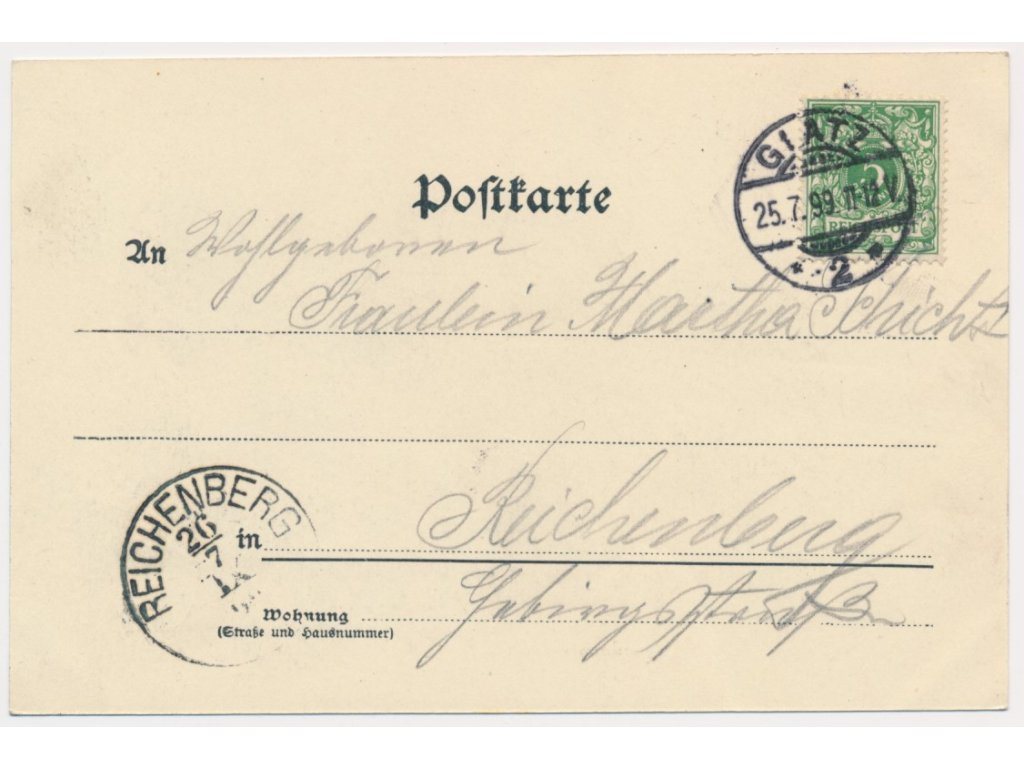 GLATZ
25.7.99. 11-12 V
* 2 *
REICHSPOST
Postkarte
An Wohlgeboren
Fräulein Martha Schicht
REICHENBERG
26/7
in Reichenberg
Wohnung Gebirgsstraße
(Straße und Hausnummer)